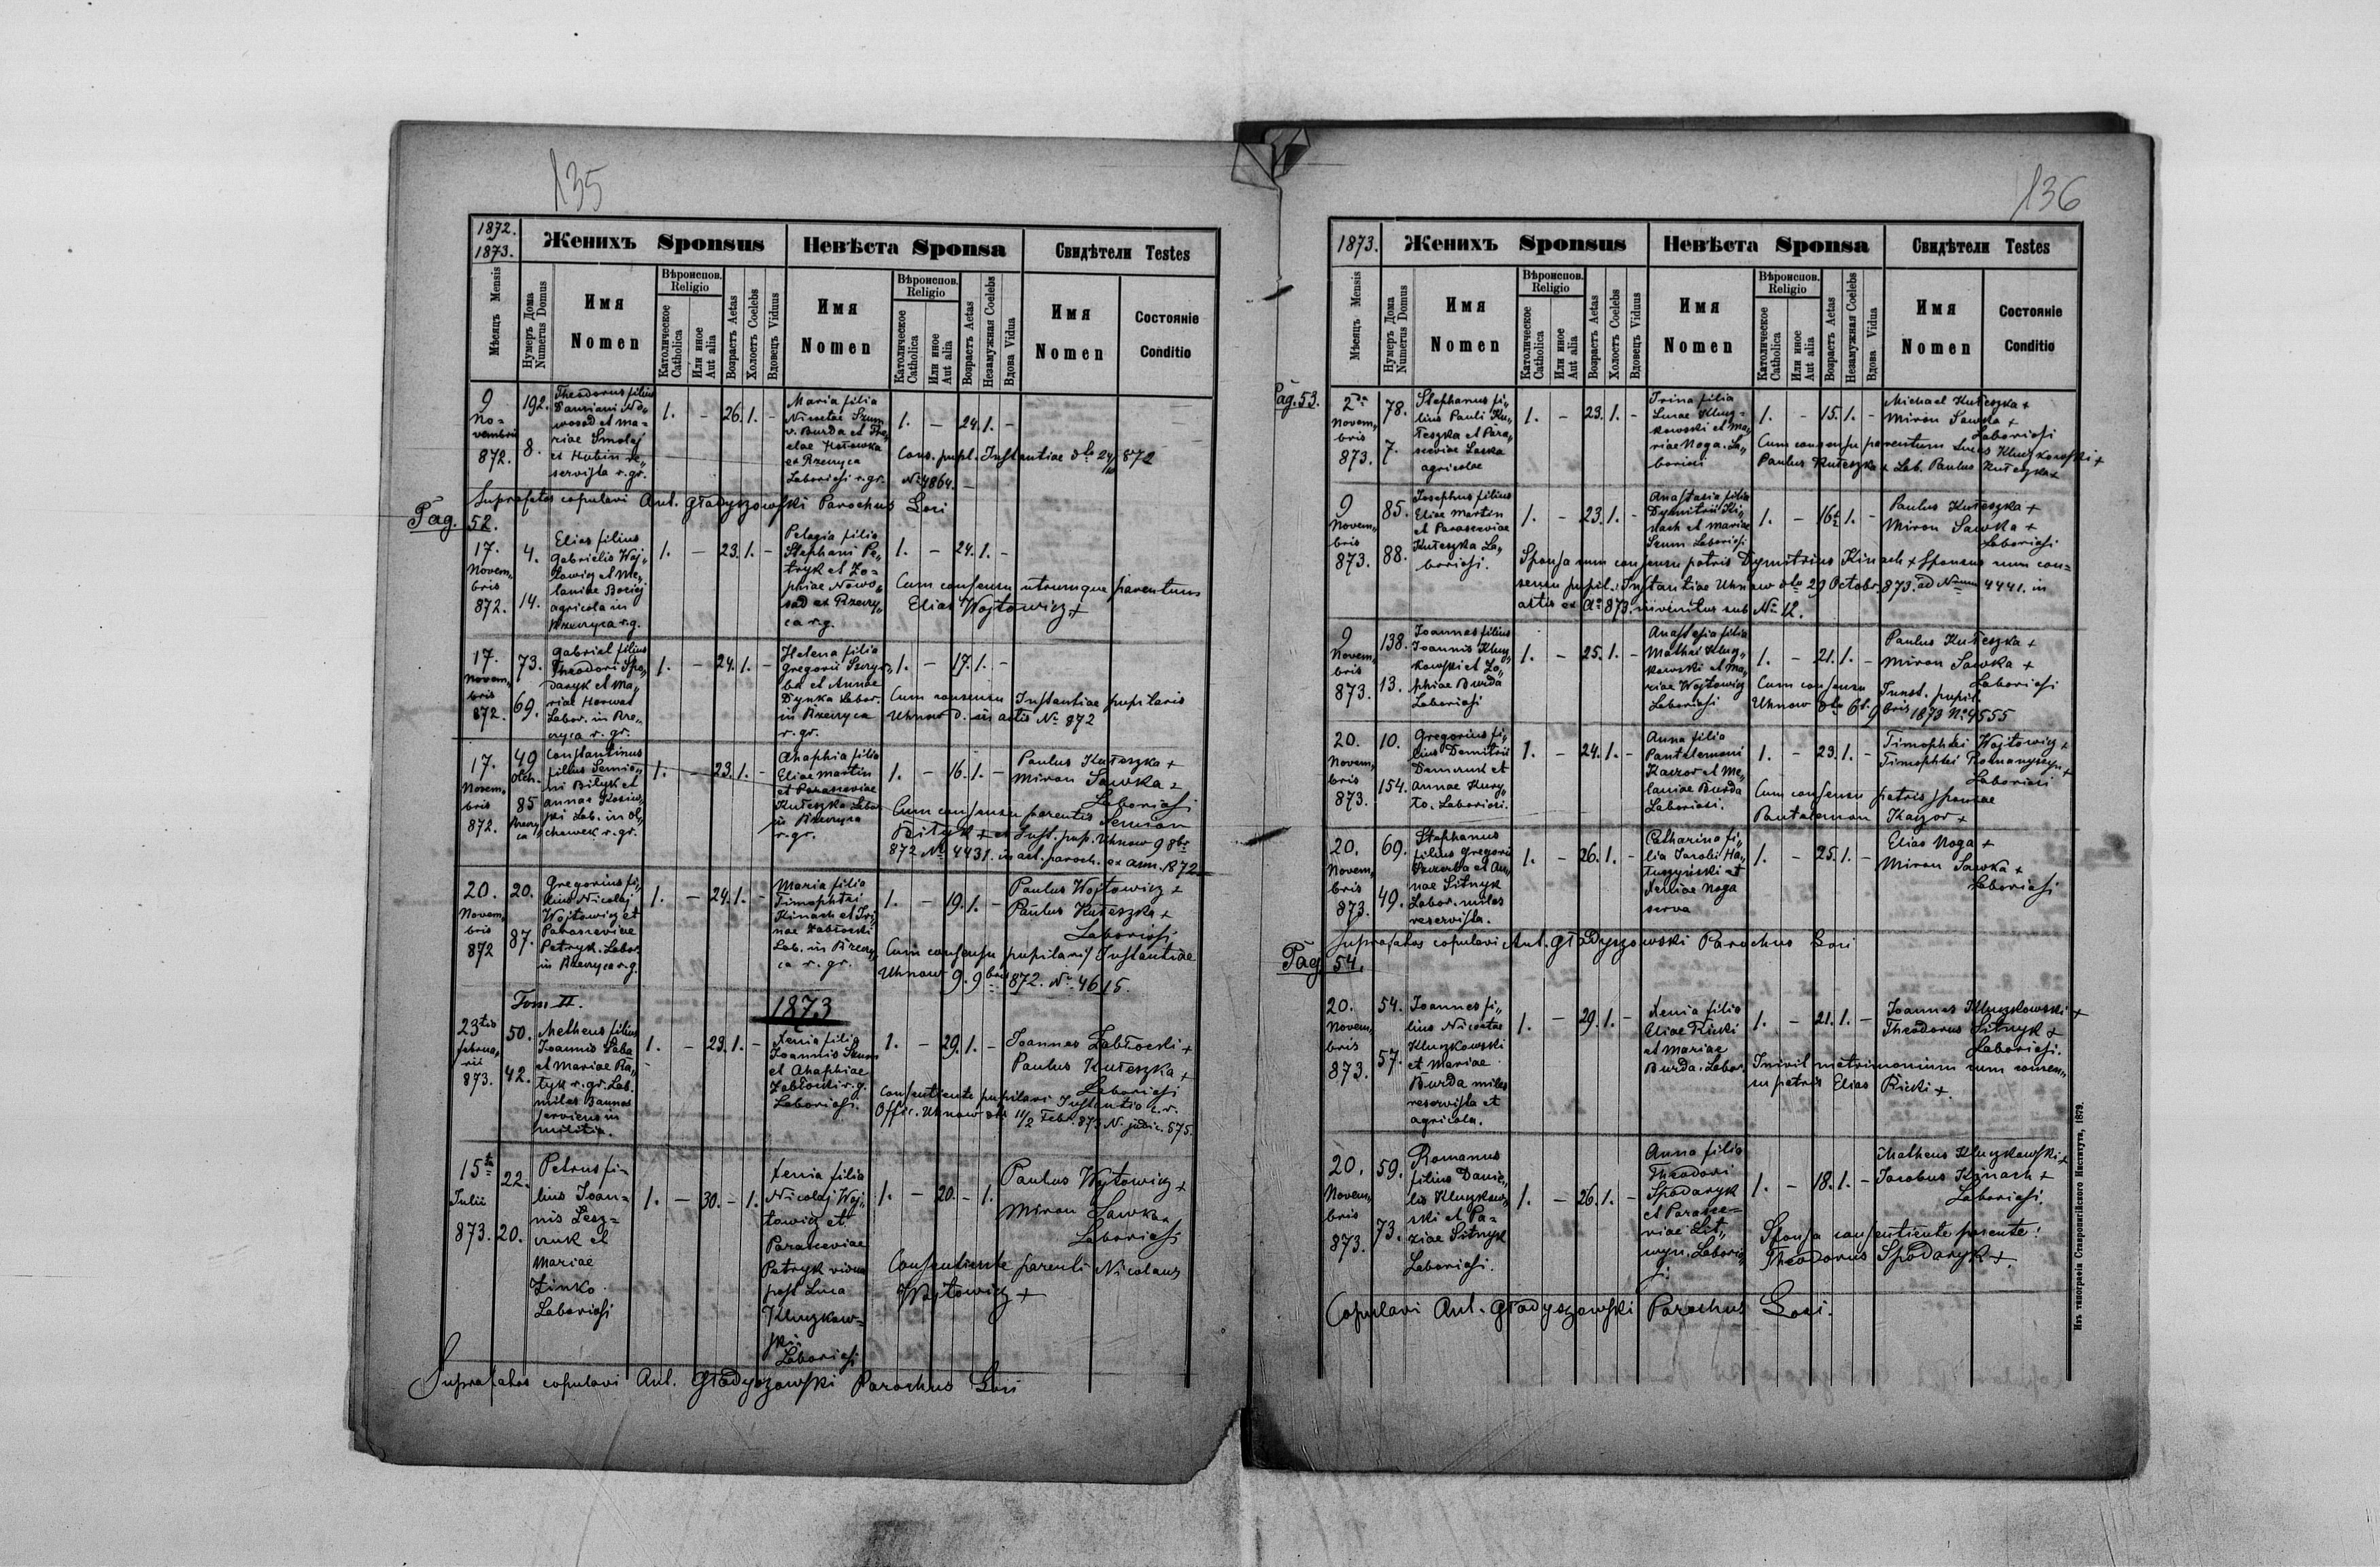 135
1872.
1873.
Женихъ Sponsus
Невѣста Sponsa
Свидѣтели Testes
Мѣсяцъ Mensis
Нумеръ Дома
Numerus Domus
Имя
Nomen
Вѣроиспов.
Religio
Католическое
Catholica
Или иное
Aut alia
Возрастъ Aetas
Холостъ Coelebs
Вдовецъ Viduus
Имя
Nomen
Вѣроиспов.
Religio
Католическое
Catholica
Или иное
Aut alia
Возрастъ Aetas
Незамужная Coelebs
Вдова Vidua
Имя
Nomen
Состояніе
Conditio
9
No-
vembris
872.
192.
8.
Theodorus filius
Damiani No„
wosad et Ma-
riae Smolej
et Hubin re„
servista r. gr.
1. – 26. 1. –
Maria filia
Nicetae Szum
v. Burda et The„
clae
ex Rzeczyca
Laboriosi r. gr.
1. – 24. 1. –
Cons. pupil. Instantiae dto 24/10 872
No 4864.
Suprafatos copulavi Ant. Gładyszowski Parochus Loci
Pag. 52.
17.
Novem„
bris
872.
4.
14.
Elias filius
Gabrielis Woj„
towicz et Me„
laniae
agricola in
Rzeczyca r. g.
1. – 23. 1. –
Pelagia filia
Stephani Pe„
tryk et Zo=
phiae Nowo„
sad ex Rzeczy„
ca r. g.
1. – 24. 1. –
Cum consensu utrumque parentum
Elias Wojtowicz +
17.
Novem„
bris
872.
73.
69.
Gabriel filius
Theodori Spo„
daryk et Ma„
riae Horwat
Labor. in Rze„
czyca r. gr.
1. – 24. 1. –
Helena filia
Gregorii Szczyr„
ba et Annae
Dynka Labor.
in Rzeczyca
r. gr.
1. – 17. 1. –
Cum consensu Instantiae pupilaris
Uhnow d. in actis No 872
17.
Novem„
bris
872.
49
Olch.
85
Rzeczy„
ca
Constantinus
filius Semio„
ni Bilyk et
Annae
Lab. in Ol„
chowek r. gr.
1. – 23. 1. –
Ahaphia filia
Eliae Martin
et Parasceviae
Kułeszka Labor
in Rzeczyca
r. gr.
1. – 16. 1. –
Paulus Kułeszka +
Miron Sawka +
Laboriosi
Cum consensu parentis Semion
Bilyk + et Inst. pup. Uhnow 9 8br
872 No 4431. in act. paroch. ex ann. 1872
20.
Novem„
bris
872
20.
87.
Gregorius fi„
lius Nicolaj
Wojtowicz et
Parasceviae
Petryk. Labor.
in Rzeczyca r. g.
1. – 24. 1. –
Maria filia
Timophtei
Kinach et Iri„
nae Zabłocki
Lab. in Rzeczy„
ca r. gr.
1. – 19. 1. –
Paulus Wojtowicz +
Paulus Kułeszka +
Laboriosi
Cum consensu pupilaris Instantiae
Uhnow 9. 9bris 872. No 4615.
Tom II.
1873
23tio
februa„
rii
873.
50.
42.
Matheus filius
Joannis Baba
et Mariae Ra„
tyk r. gr. Lab.
miles
serviens in
militia.
1. – 23. 1. –
Xenia filia
Joannis Szum
et Ahaphiae
Zabłocki r. g.
Laboriosi.
1. – 29. 1. –
Joannes Zabłocki +
Paulus Kułeszka +
Laboriosi
Consentiente pupilari Instantia c. r.
Offic. Uhnow dto 11/2 Febr. 873 N. judic. 575.
15ta
Julii
873.
22.
20.
Petrus fi-
lius Joan-
nis Lesz=
czuk et
Mariae
Zinko.
Laboriosi
1. – 30. – 1.
Xenia filia
Nicolaj Woj„
towicz et
Parasceviae
Petryk vidua
post Luca
Kluczkow=
ski.
Laboriosi
1. – 20. – 1.
Paulus Wojtowicz +
Miron Sawka +
Laboriosi
Consentiente parenti Nicolaus
Wojtowicz +
Suprafatos copulavi Ant. Gładyszowski Parochus Loci
136
1873.
Женихъ Sponsus
Невѣста Sponsa
Свидѣтели Testes
Мѣсяцъ Mensis
Нумеръ Дома
Numerus Domus
Имя
Nomen
Вѣроиспов.
Religio
Католическое
Catholica
Или иное
Aut alia
Возрастъ Aetas
Холостъ Coelebs
Вдовецъ Viduus
Имя
Nomen
Вѣроиспов.
Religio
Католическое
Catholica
Или иное
Aut alia
Возрастъ Aetas
Незамужная Coelebs
Вдова Vidua
Имя
Nomen
Состояніе
Conditio
Pag. 53.
2da
Novem„
bris
873.
78.
7.
Stephanus fi„
lius Pauli Ku„
łeszka et Para„
sceviae Laska
agricolae
1. – 23. 1. –
Irina filia
Lucae Klucz-
kowski et Ma„
riae Noga. La„
boriosi
1. – 15. 1. –
Michael Kułeszka +
Miron Sawka +
Laboriosi
Cum consensu parentum Lucas Kluczkowski +
Paulus Kułeszka + Lab. Paulus Kułeszka +
9
Novem„
bris
873.
85.
88.
Josephus filius
Eliae Martin
et Parasceviae
Kułeszka La„
boriosi.
1. – 23. 1. –
Anastasia filia
Dymitrii Ki„
nach et Mariae
Szum. Laboriosi
1. – 16½ 1. –
Paulus Kułeszka +
Miron Sawka +
Laboriosi
Sponsa cum consensu patris Dymitrius Kinach + Sponsus cum con=
sensu pupil. Instantiae Uhnow dto 29 Octobr. 873. ad Num 4441. in
actis ex Ao 873. invenitus sub No 12.
9
Novem„
bris
873.
138.
13.
Joannes filius
Joannis Klucz„
kowski et Zo„
phiae Burda
Laboriosi
1. – 25. 1. –
Anastasia filia
Mathei Klucz„
kowski et Ma„
riae Wojtowicz
Laboriosi
1. – 21. 1. –
Paulus Kułeszka +
Miron Sawka +
Laboriosi
Cum consensu Inst. pupil.
Uhnow dto 6t. 9bris 1873 No 4555
20.
Novem„
bris
873.
10.
154.
Gregorius fi„
lius Demitrii
et
Annae Kury„
ło. Laboriosi.
1. – 24. 1. –
Anna filia
Pantalemoni
Kaczor et Me„
laniae Burda
Laboriosi.
1. – 23. 1. –
Timophtei Wojtowicz +
Timophtei Romanyszyn +
Laboriosi
Cum consensu patris sponsae
Pantalemon Kaczor +
20.
Novem„
bris
873.
69.
49.
Stephanus
filius Gregorii
Szczerba et An„
nae Sitnyk
Labor. miles
reservista.
1. – 26. 1. –
Catharina fi„
lia Jacobi Ha„
łuszyński et
Xeniae Noga
serva
1. – 25. 1. –
Elias Noga +
Miron Sawka +
Laboriosi
Suprafatos copulavi Ant. Gładyszowski Parochus Loci
Pag. 54.
20.
Novem„
bris
873.
54.
57.
Joannes fi„
lius Nicetas
Kluczkowski
et Mariae
Burda miles
reservista et
agricola.
1. – 29. 1. –
Xenia filia
Eliae Ricki
et Mariae
Burda. Labor.
1. – 21. 1. –
Joannes Kluczkowski +
Theodorus Sitnyk +
Laboriosi.
Inivit matrimonium cum consen„
su patris Elias Ricki +.
20.
Novem„
bris
873.
59.
73.
Romanus
filius Danie„
lis Kluczkow„
ski et Pa-
ziae Sitnyk
Laboriosi.
1. – 26. 1. –
Anna filia
Theodori
Spodaryk
et Parasce-
viae Lit„
wyn. Laborio„
si.
1. – 18. 1. –
Matheus Kluczkowski +
Jacobus Kinach +
Laboriosi.
Sponsa consentiente parente:
Theodorus Spodaryk +.
Copulavi Ant. Gładyszowski Parochus Loci.
Изъ типографіи Ставропигійского Института, 1879.